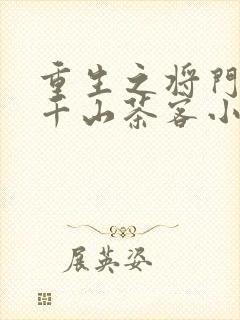 重生之将門
千山茶客小
展英姿